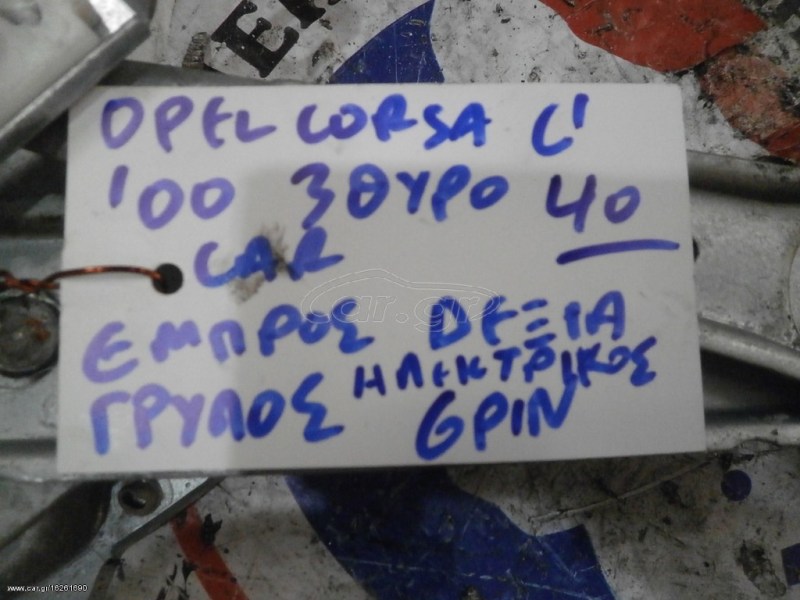 OPEL CORSA C'
'00 3ΘΥΡΟ 40
CAR
ΕΜΠΡΟΣ ΔΕΞΙΑ
ΗΛΕΚΤΡΙΚΟΣ
ΓΡΥΛΟΣ 6PIN
car.gr
www.car.gr/16261690